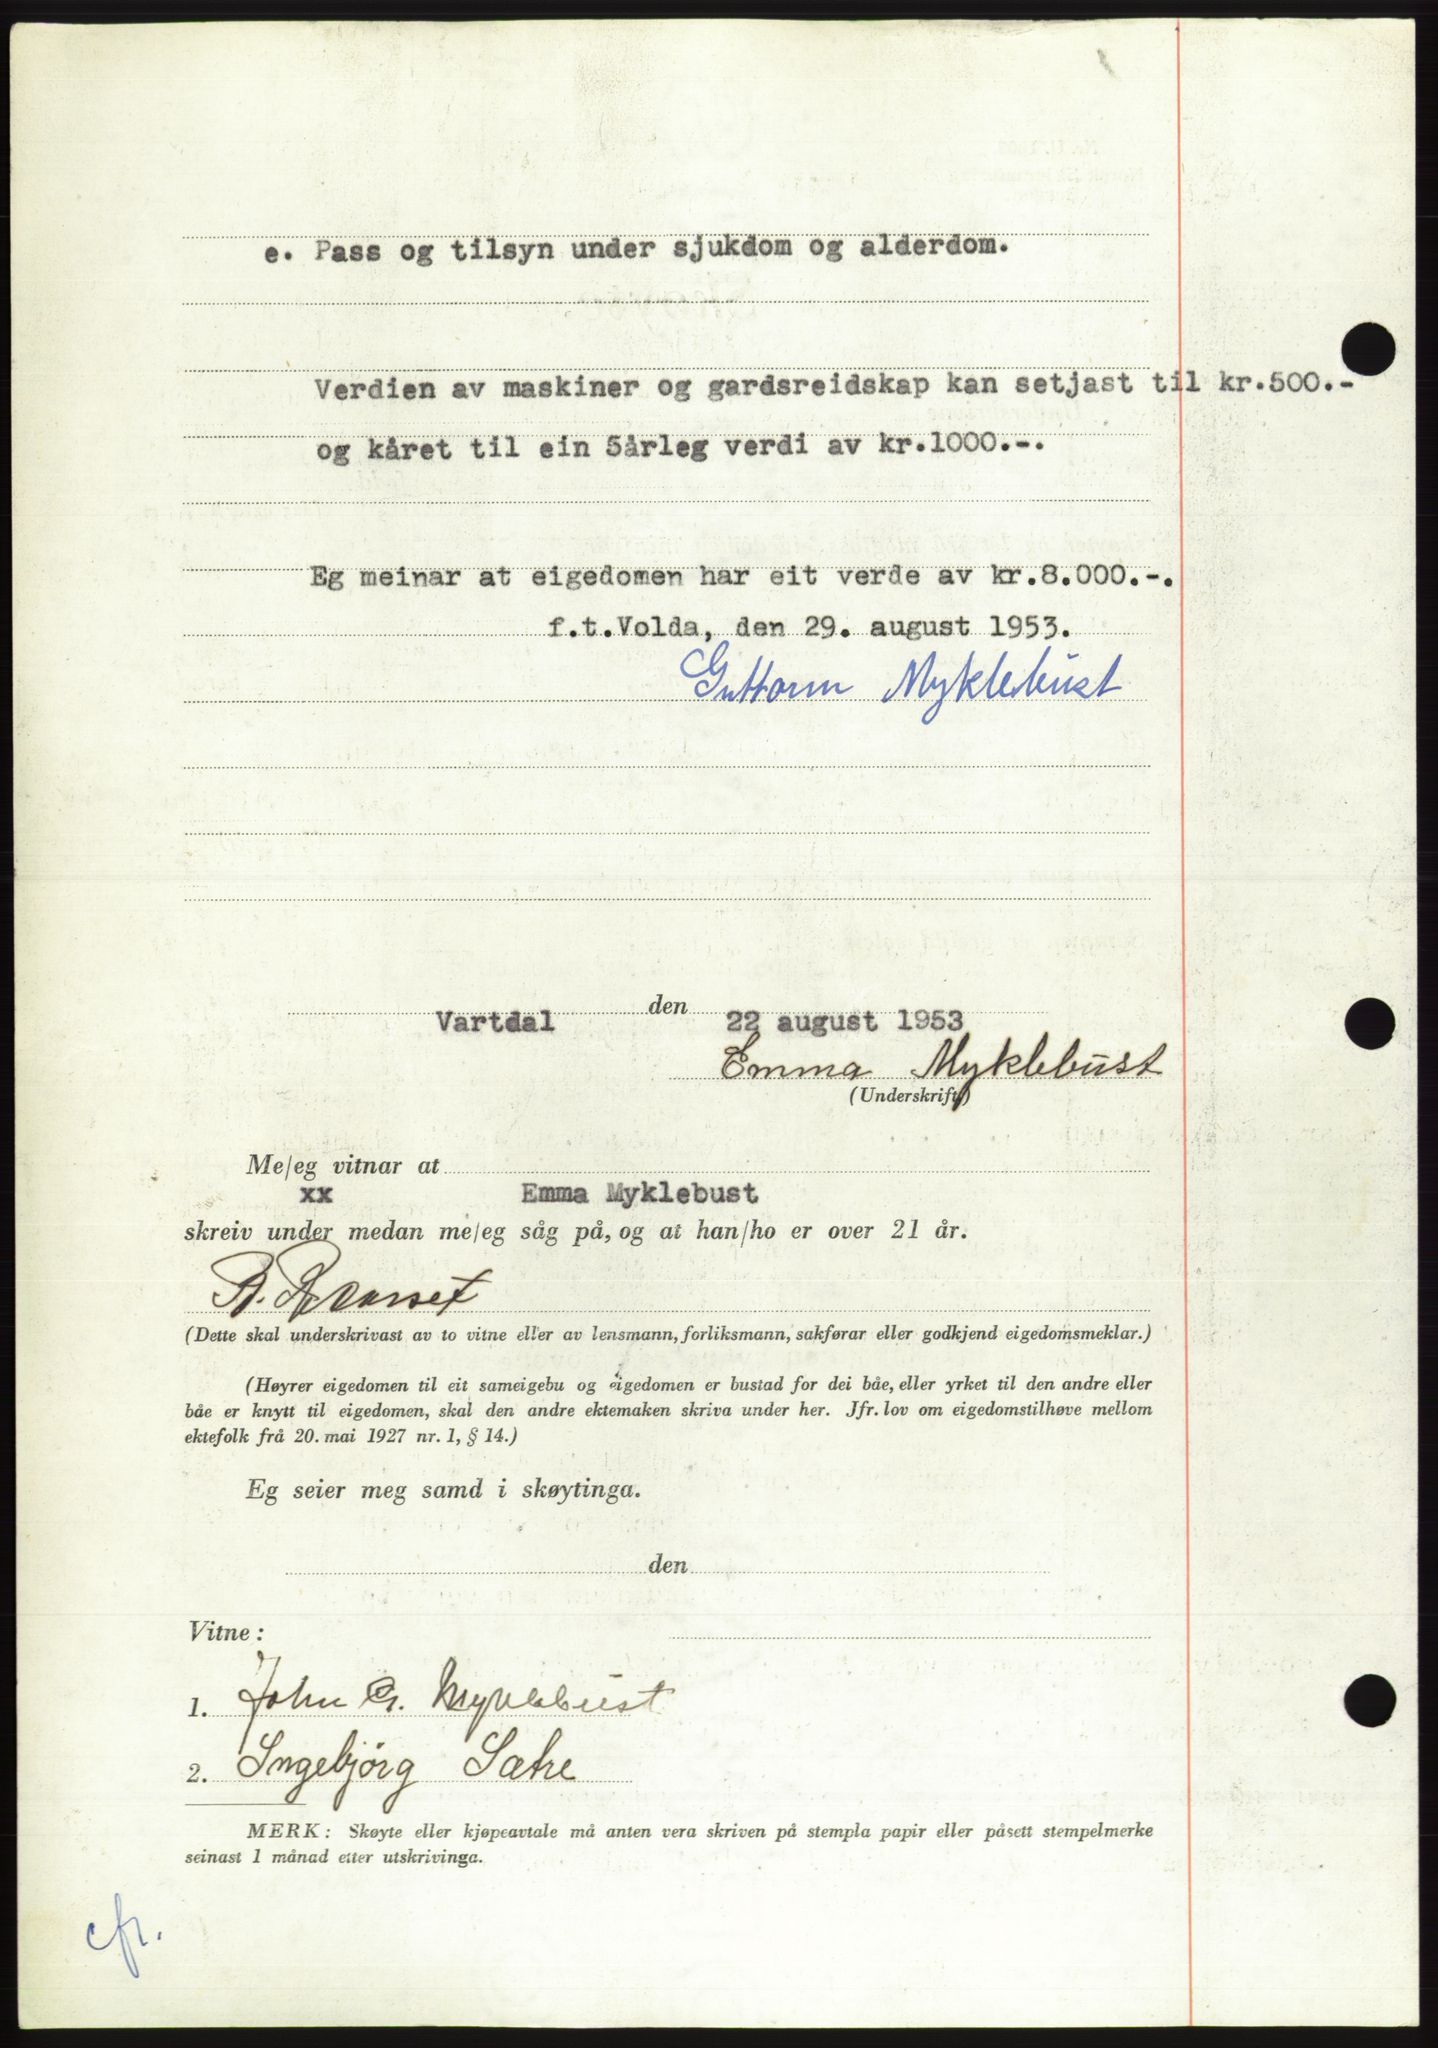 e. Pass og tilsyn under sjukdom og alderdom.
Verdien av maskiner og gardsreidskap kan setjast til kr.500.-
og kåret til ein 5årleg verdi av kr.1000.-.
Eg meinar at eigedomen har eit verde av kr.8.000.-.
f.t.Volda, den 29. august 1953.
Guttorm Myklebust
Vartdal den 22 august 1953
Emma Myklebust
(Underskrift)
Me/eg vitnar at
xx Emma Myklebust
skreiv under medan me/eg såg på, og at han/ho er over 21 år.
(Dette skal underskrivast av to vitne eller av lensmann, forliksmann, sakførar eller godkjend eigedomsmeklar.)
(Høyrer eigedomen til eit sameigebu og eigedomen er bustad for dei båe, eller yrket til den andre eller
båe er knytt til eigedomen, skal den andre ektemaken skriva under her. Jfr. lov om eigedomstilhøve mellom
ektefolk frå 20. mai 1927 nr. 1, § 14.)
Eg seier meg samd i skøytinga.
den
Vitne:
1. John G. Myklebust
2. Ingebjørg Sætre
MERK: Skøyte eller kjøpeavtale må anten vera skriven på stempla papir eller påsett stempelmerke
seinast 1 månad etter utskrivinga.
cfr.